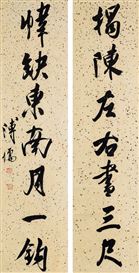 揭陳左右書三尺
幃缺東南月一鉤
溥儒